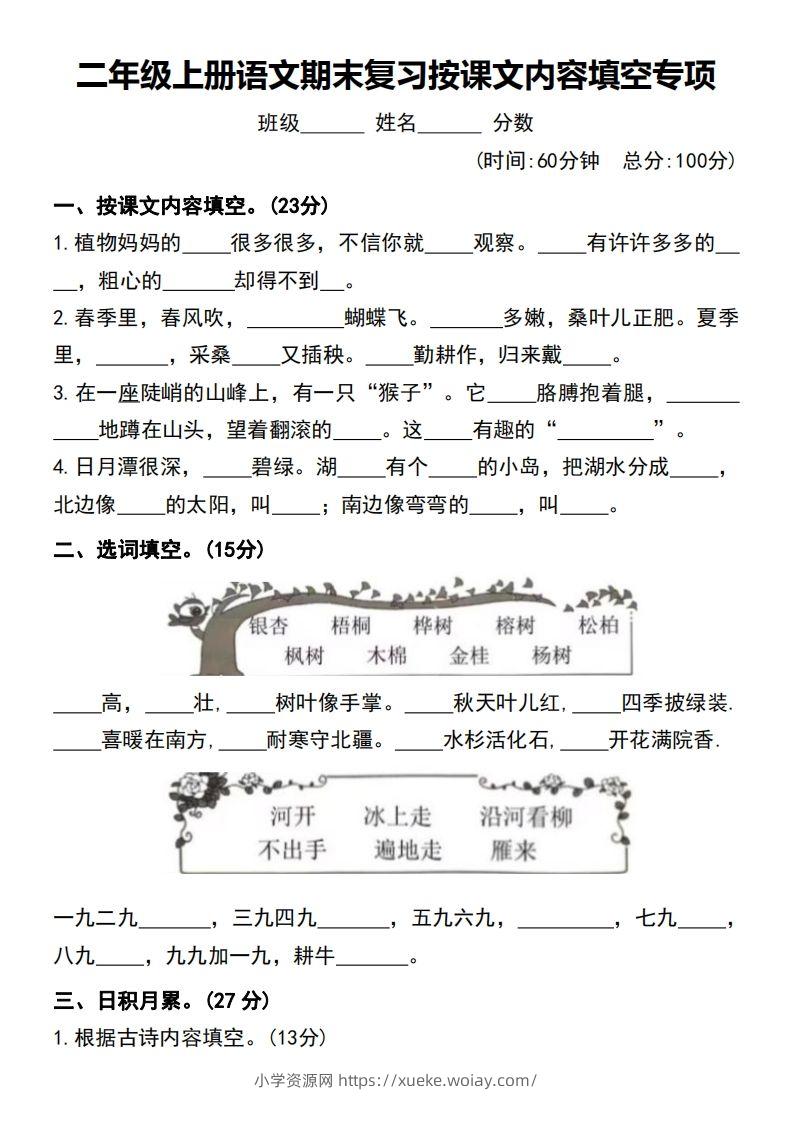 二年级上册语文期末复习按课文内容填空专项
班级______ 姓名______ 分数
(时间:60分钟 总分:100分)
一、按课文内容填空。(23分)
1.植物妈妈的____很多很多，不信你就____观察。____有许许多多的__
__，粗心的______却得不到__。
2.春季里，春风吹，________蝴蝶飞。______多嫩，桑叶儿正肥。夏季
里，______，采桑____又插秧。____勤耕作，归来戴____。
3.在一座陡峭的山峰上，有一只“猴子”。它____胳膊抱着腿，______
____地蹲在山头，望着翻滚的____。这____有趣的“________”。
4.日月潭很深，____碧绿。湖____有个____的小岛，把湖水分成____，
北边像____的太阳，叫____；南边像弯弯的____，叫____。
二、选词填空。(15分)
银杏 梧桐 桦树 榕树 松柏
枫树 木棉 金桂 杨树
____高，____壮,____树叶像手掌。____秋天叶儿红,____四季披绿装.
____喜暖在南方,____耐寒守北疆。____水杉活化石,____开花满院香.
河开 冰上走 沿河看柳
不出手 遍地走 雁来
一九二九______，三九四九______，五九六九，________，七九____，
八九____，九九加一九，耕牛______。
三、日积月累。(27 分)
1.根据古诗内容填空。(13分)
小学资源网 https://xueke.woiay.com/